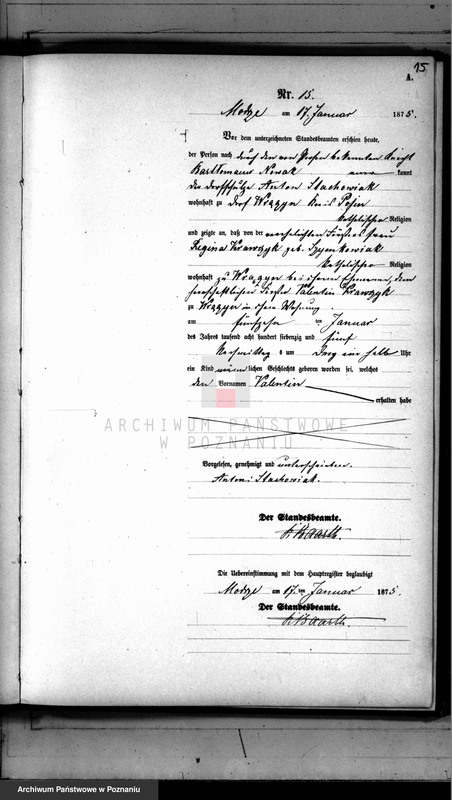 15
A.
Nr. 15.
Modze am 17. Januar 1875.
Vor dem unterzeichneten Standesbeamten erschien heute,
der Person nach durch den von Person bekannten
Nowak anerkannt
Anton Stachowiak
wohnhaft zu Dorf Kreis Posen
katholischer Religion
und zeigte an, daß von der verehelichten Försters Frau
Regina Krawczyk geb. Szymkowiak
katholischer Religion
wohnhaft zu bei ihrem Ehemanne, dem
herrschaftlichen Förster Valentin Krawczyk
zu in ihrer Wohnung
am fünfzehn ten Januar
des Jahres tausend acht hundert siebenzig und fünf
Nachmittag s um Drei ein halb Uhr
ein Kind männlichen Geschlechts geboren worden sei, welches
den Vornamen Valentin
erhalten habe
ARCHIWUM PAŃSTWOWE
W POZNANIU
Vorgelesen, genehmigt und unterschrieben.
Antoni Stachowiak.
Der Standesbeamte.
Die Uebereinstimmung mit dem Hauptregister beglaubigt
Modze am 17. ten Januar 1875.
Der Standesbeamte.
Archiwum Państwowe w Poznaniu